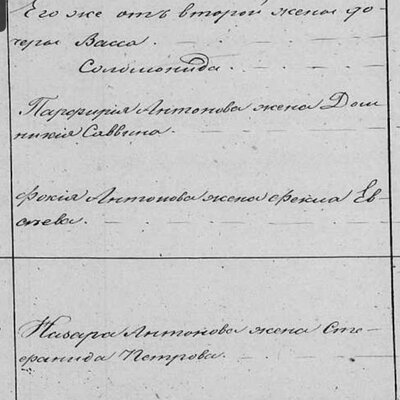 Его же отъ второй жены до-
черы Васса.
Соломонида.
Парфирія Антонова жена Дом-
никія Саввина.
Фокія Антонова жена Фекла Ев-
сѣева.
Назара Антонова жена Сте-
фанида Петрова.